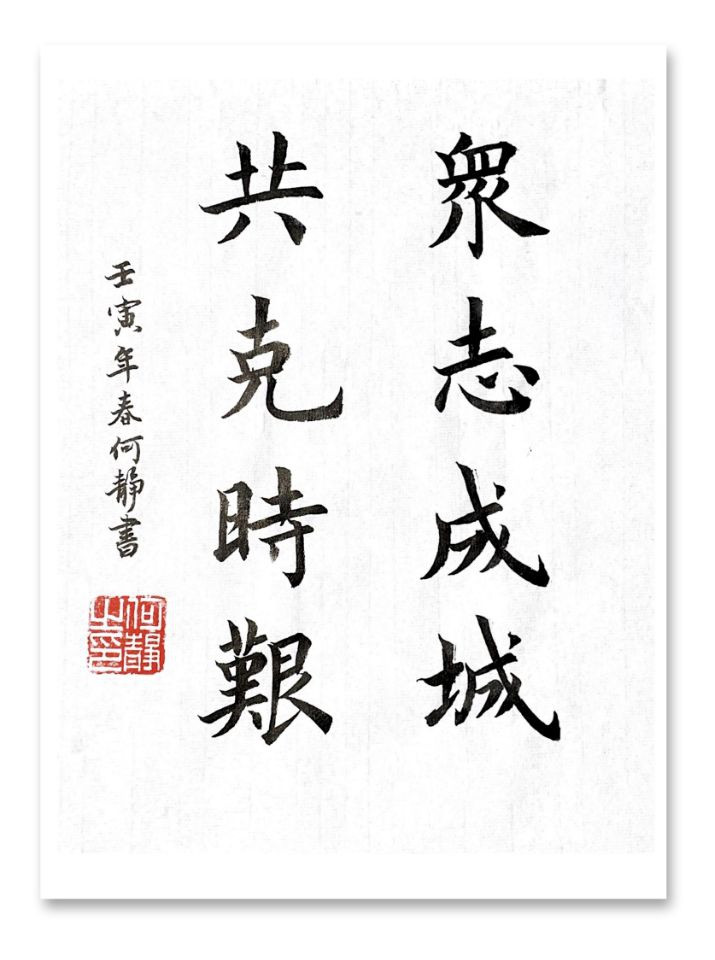 衆志成城
共克時艱
壬寅年春何静書
何靜之印